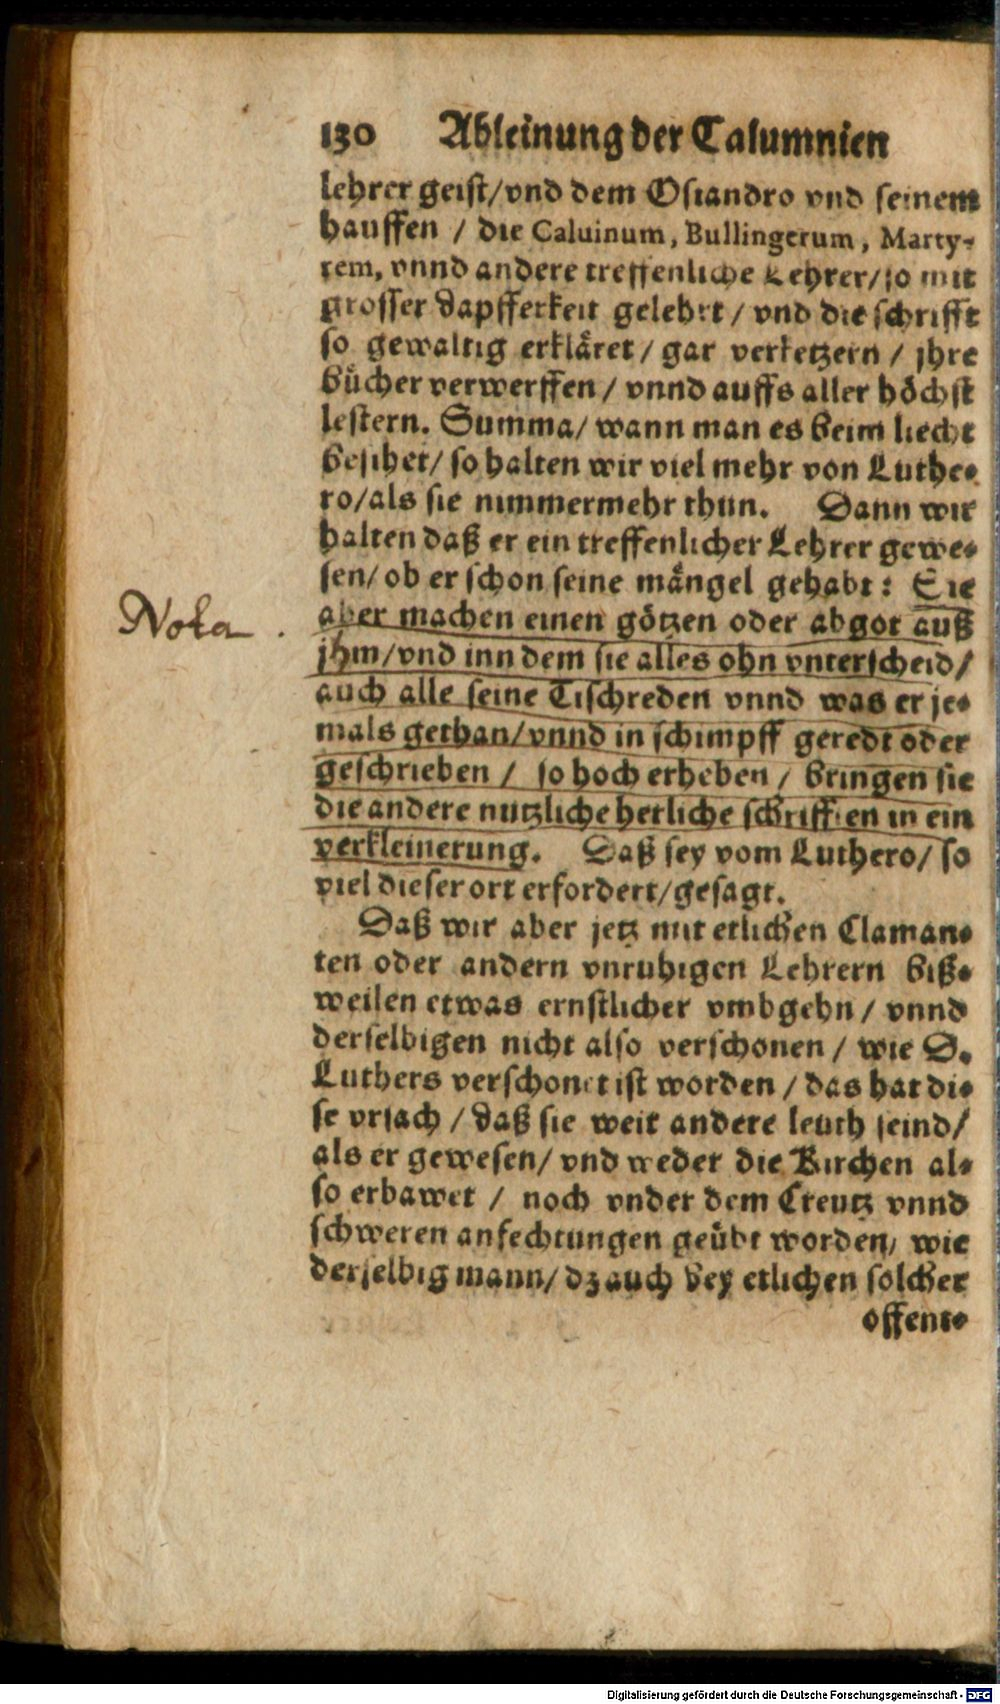 130 Ableinung der Calumnien
lehrer geist/vnd dem Osiandro vnd seinem
hauffen / die Caluinum, Bullingerum, Marty-
rem, vnnd andere treffenliche Lehrer/so mit
grosser dapfferkeit gelehrt / vnd die schrifft
so gewaltig erkläret / gar verketzern / jhre
bücher verwerffen / vnnd auffs aller höchst
lestern. Summa/ wann man es beim liecht
besihet/ so halten wir viel mehr von Luthe-
ro/als sie nimmermehr thun. Dann wir
halten daß er ein treffenlicher Lehrer gewe-
sen/ ob er schon seine mängel gehabt: Sie
aber machen einen götzen oder abgot auß
Nota.
jhm/vnd inn dem sie alles ohn vnterscheid/
auch alle seine Tischreden vnnd was er je-
mals gethan/vnnd in schimpff geredt oder
geschrieben / so hoch erheben / bringen sie
die andere nutzliche herliche schrifften in ein
verkleinerung. Daß sey vom Luthero/ so
viel dieser ort erfordert/gesagt.
Daß wir aber jetz mit etlichen Claman-
ten oder andern vnruhigen Lehrern biß-
weilen etwas ernstlicher vmbgehn / vnnd
derselbigen nicht also verschonen / wie D.
Luthers verschonet ist worden / das hat di-
se vrsach / daß sie weit andere leuth seind/
als er gewesen/ vnd weder die Kirchen al-
so erbawet / noch vnder dem Creutz vnnd
schweren anfechtungen geübt worden, wie
derselbig mann/ dz auch bey etlichen solcher
offent-
Digitalisierung gefördert durch die Deutsche Forschungsgemeinschaft - DFG